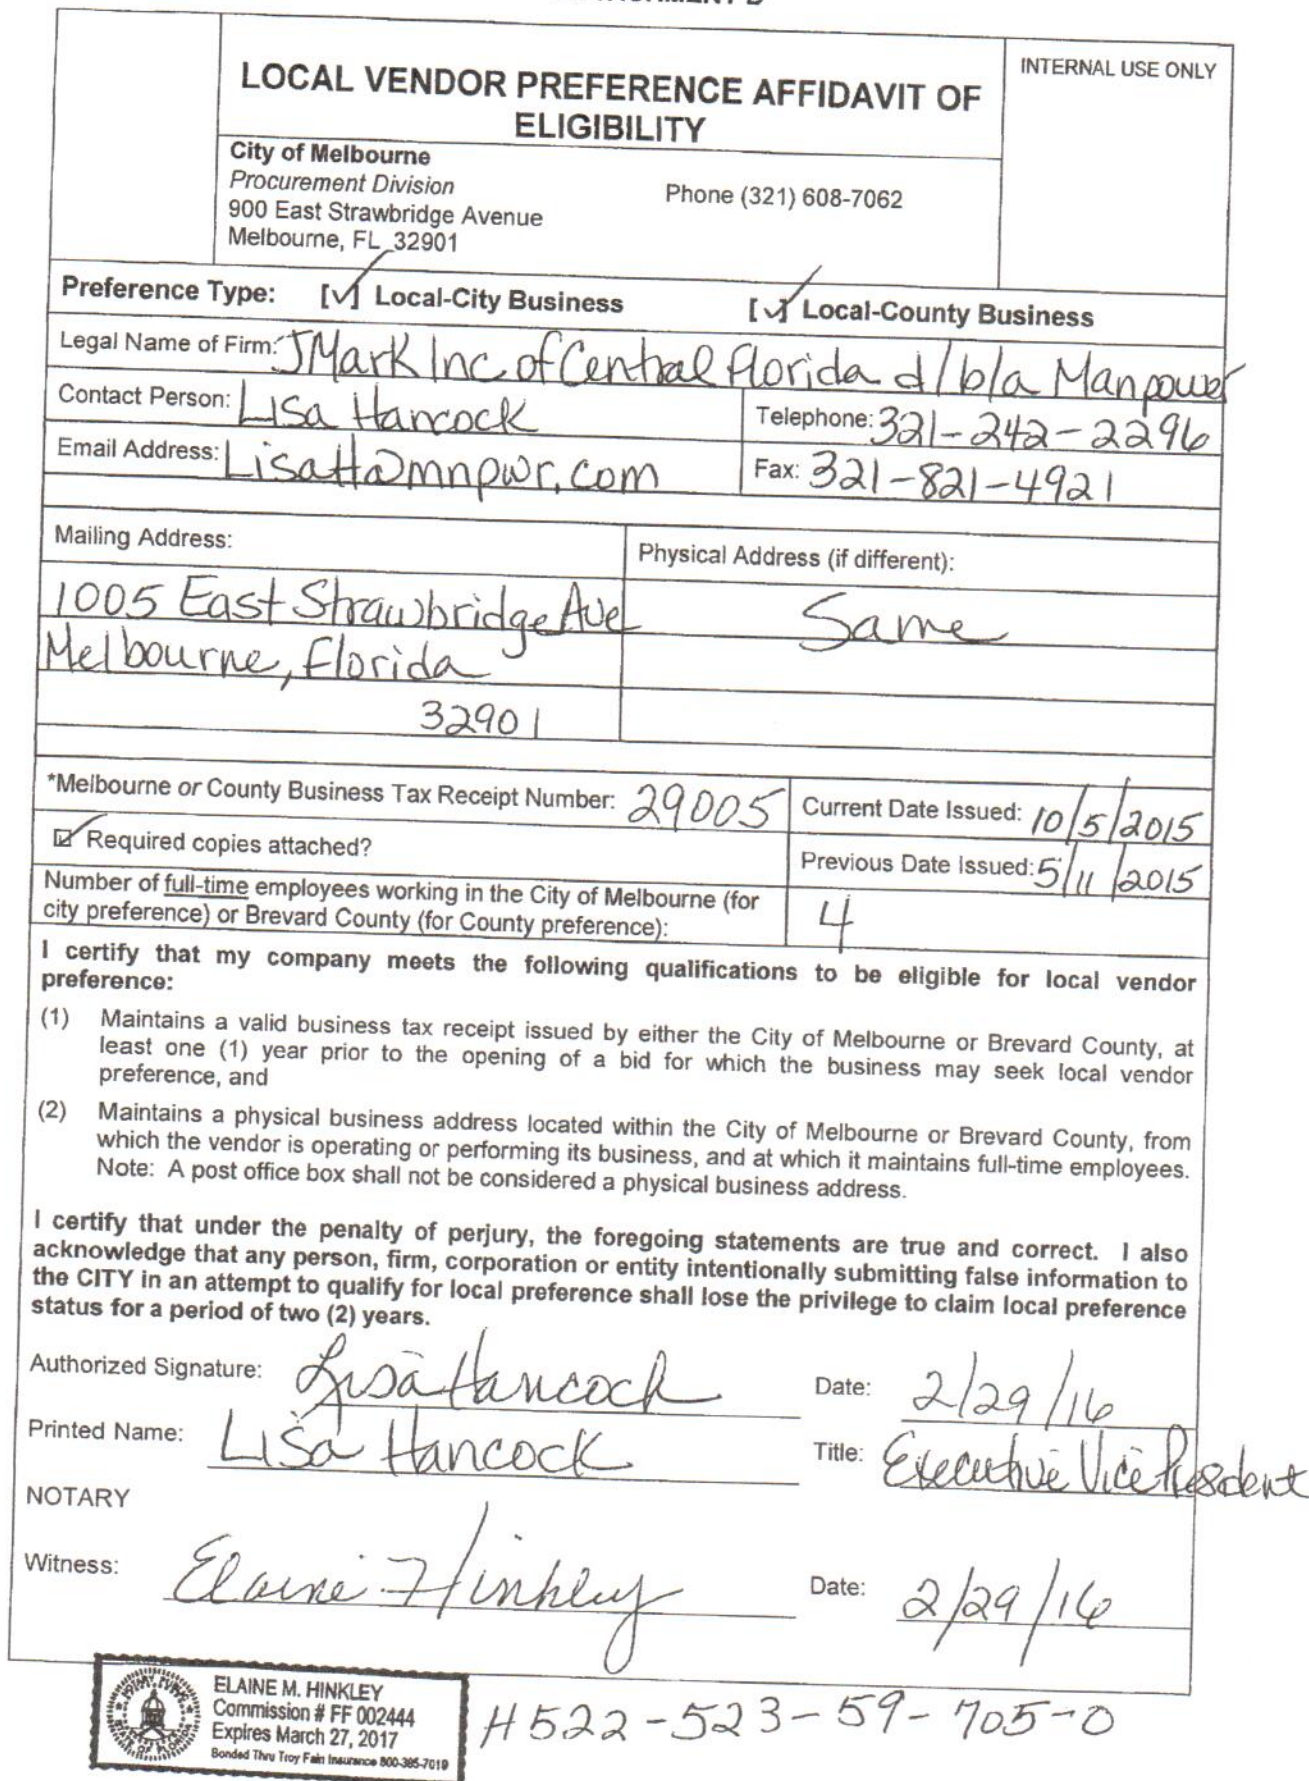 LOCAL VENDOR PREFERENCE AFFIDAVIT OF
ELIGIBILITY
INTERNAL USE ONLY
City of Melbourne
Procurement Division
900 East Strawbridge Avenue
Melbourne, FL 32901
Phone (321) 608-7062
Preference Type: [✓] Local-City Business [✓] Local-County Business
Legal Name of Firm: JMark Inc of Central Florida d/b/a Manpower
Contact Person: Lisa Hancock
Telephone: 321-242-2296
Email Address: LisaH@mnpwr.com
Fax: 321-821-4921
Mailing Address:
1005 East Strawbridge Ave
Melbourne, Florida
32901
Physical Address (if different):
Same
*Melbourne or County Business Tax Receipt Number: 29005
Current Date Issued: 10/5/2015
☑ Required copies attached?
Previous Date Issued: 5/11/2015
Number of full-time employees working in the City of Melbourne (for
city preference) or Brevard County (for County preference):
4
I certify that my company meets the following qualifications to be eligible for local vendor
preference:
(1) Maintains a valid business tax receipt issued by either the City of Melbourne or Brevard County, at
least one (1) year prior to the opening of a bid for which the business may seek local vendor
preference, and
(2) Maintains a physical business address located within the City of Melbourne or Brevard County, from
which the vendor is operating or performing its business, and at which it maintains full-time employees.
Note: A post office box shall not be considered a physical business address.
I certify that under the penalty of perjury, the foregoing statements are true and correct. I also
acknowledge that any person, firm, corporation or entity intentionally submitting false information to
the CITY in an attempt to qualify for local preference shall lose the privilege to claim local preference
status for a period of two (2) years.
Authorized Signature: Lisa Hancock Date: 2/29/16
Printed Name: Lisa Hancock Title: Executive Vice President
NOTARY
Witness: Elaine Hinkley Date: 2/29/16
ELAINE M. HINKLEY
Commission # FF 002444
Expires March 27, 2017
Bonded Thru Troy Fain Insurance 800-385-7019
H522-523-59-705-0